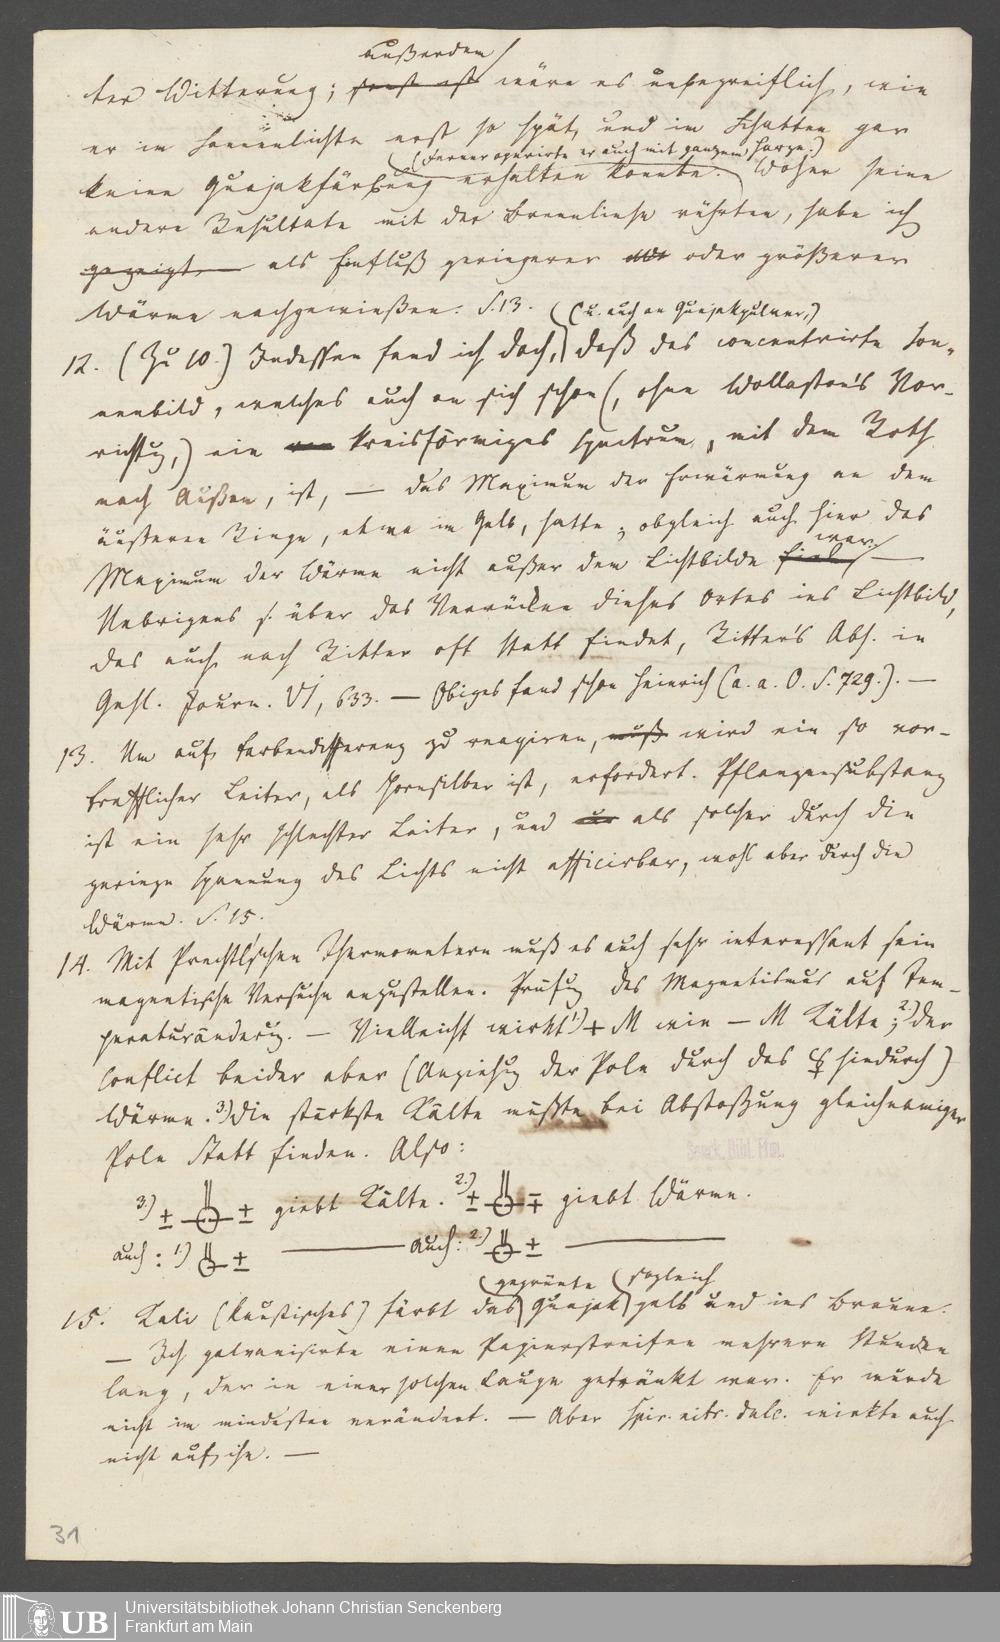 außerdem
ter Witterung; sonst ist wäre es unbegreiflich, wie
er im Sonnenlichte erst so spät, und im Schatten gar
(Ferner operirte er auch mit ganzem Harze.)
keine Guajakfärbung erhalten konnte. Woher seine
andere Resultate mit der Brennlinse rührten, habe ich
gezeigt, als Einfluß geringerer oder größerer
Wärme nachgewiesen. S. 13.
(u. auch an Guajakpulver,)
12. (Zu 10.) Indessen fand ich doch, daß das concentrirte Son-
nenbild, welches auch an sich schon (, ohne Wollaston's Vor-
richtg,) ein kreisförmiges Spectrum, mit dem Roth
nach Außen, ist, — das Maximum der Erwärmung an dem
äußeren Ringe, etwa im Gelb, hatte; obgleich auch hier das
war.
Maximum der Wärme nicht außer dem Lichtbilde fiel
Uebrigens s. über das Verrücken dieses Ortes ins Lichtbild,
das auch nach Ritter oft Statt findet, Ritter's Abh. in
Gehl. Journ. VI, 633. — Obiges fand schon Heinrich (a. a. O. S. 729.). —
13. Um auf Farbendifferenz zu reagiren, muß wird ein so vor-
trefflicher Leiter, als Hornsilber ist, erfordert. Pflanzensubstanz
ist ein sehr schlechter Leiter, und als solcher durch die
geringe Spannung des Lichts nicht afficirbar, wohl aber durch die
Wärme. S. 15.
14. Mit Prechtl'schen Thermometern muß es auch sehr interessant sein
magnetische Versuche anzustellen. Prüfung des Magnetismus auf Tem-
peraturänderg. — Vielleicht wirkt 1.) + M wie — M Kälte; 2.) der
Conflict beider aber (Anziehg der Pole durch das ☿ hindurch)
Wärme. 3.) Die stärkste Kälte müßte bei Abstoßung gleichnamiger
Pole Statt finden. Also:
3.) ± ± giebt Kälte. 2.) ± ∓ giebt Wärme.
auch: 1.) ± — auch: 2.) ± —
(geprünte (sogleich
15. Kali (kaustisches) färbt das Guajak gelb und ins Braune.
— Ich galvanisirte einen Papierstreifen mehrere Stunden
lang, der in einer solchen Lauge getränkt war. Er wurde
nicht im mindesten verändert. — Aber Spir. nitr. dulc. wirkte auch
nicht auf ihn. —
Senck. Bibl. Ffm.
31
UB
Universitätsbibliothek Johann Christian Senckenberg
Frankfurt am Main